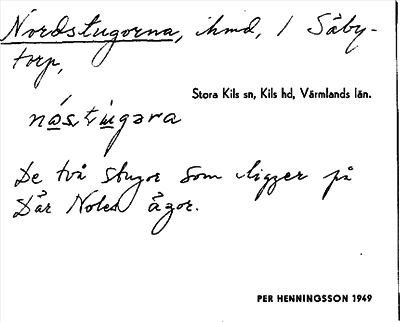 Nordstugorna, ihmd, / Säby-
torp,
Stora Kils sn, Kils hd, Värmlands län.
nástùgəra
De två stugor som ligger på
Där Noles ågor.
PER HENNINGSSON 1949